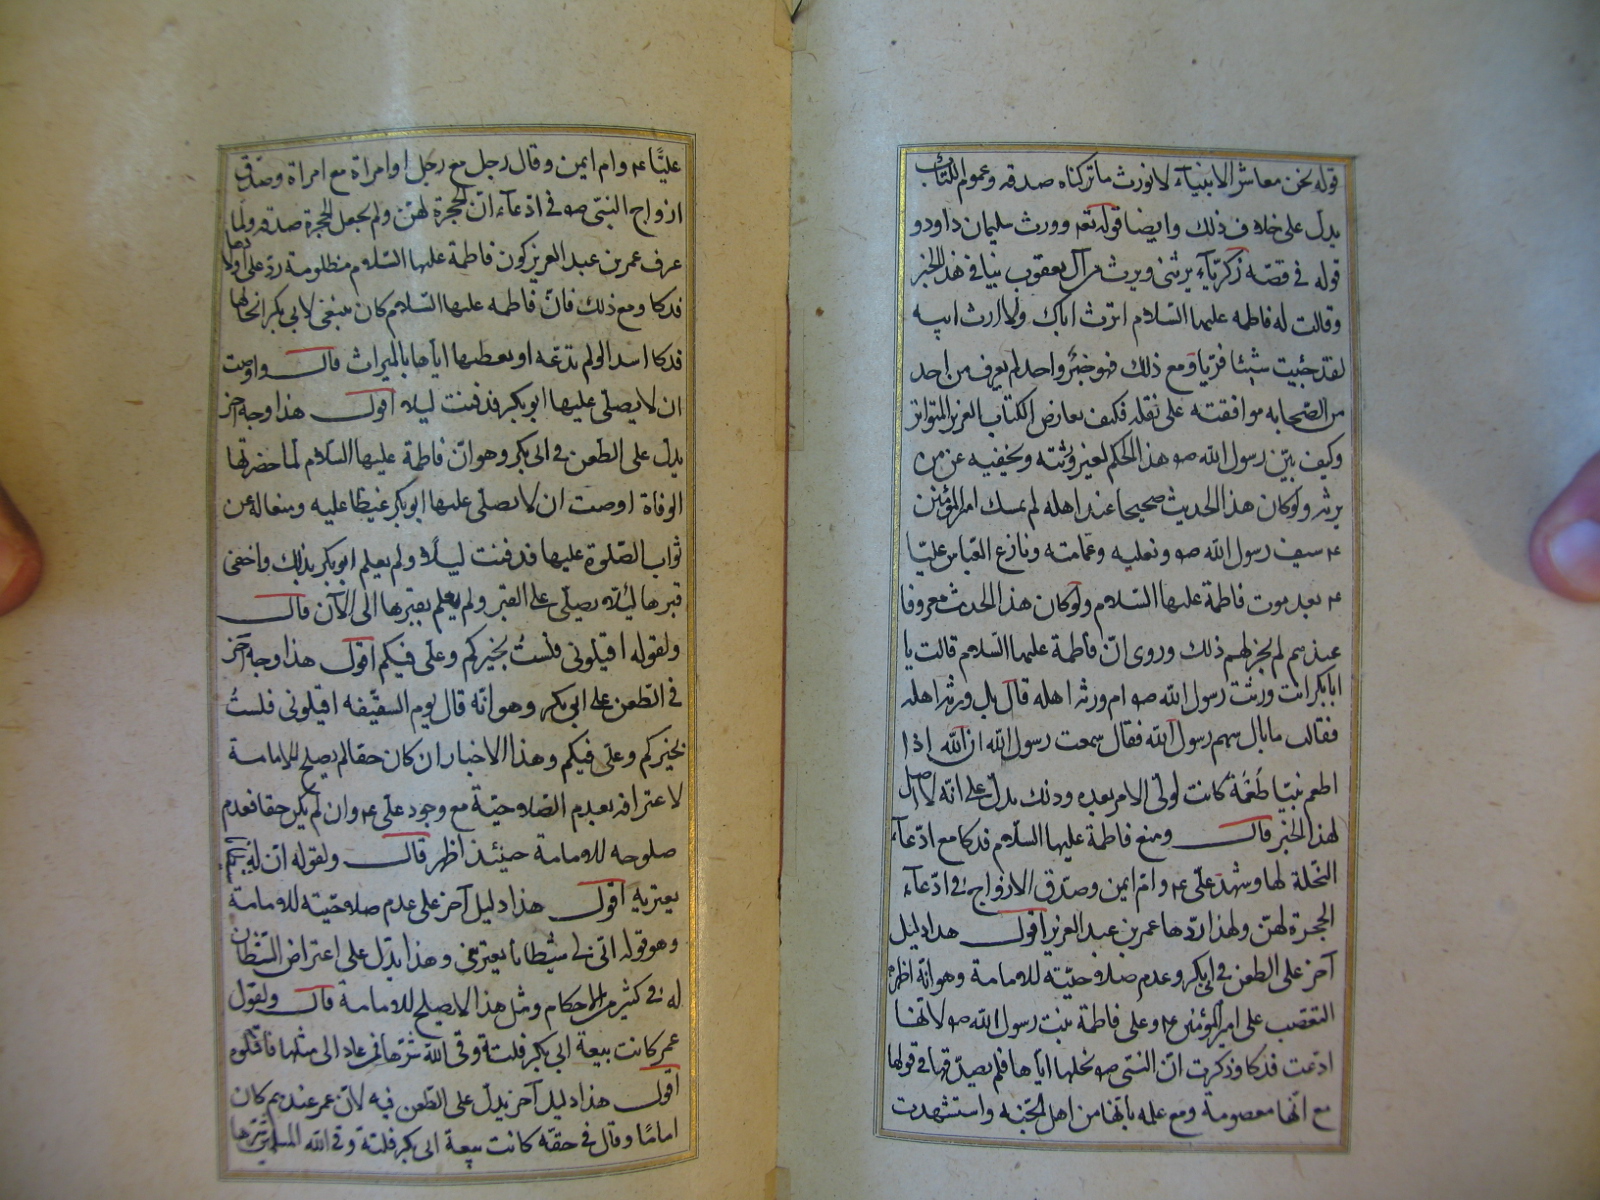 قوله نحن معاشر الانبیآء لا نورث ما ترکناه صدقه وعموم الکتاب
یدل علی خلاف ذلك وایضا قوله تعه وورث سلیمان داود و
قوله فی قصه زکریآء یرثنی ویرث من آل یعقوب نبیا فی هذا الخبر
وقالت له فاطمه علیها السلام اترث اباك ولا ارث ابیه
لقد جئیت شیئا فریا ومع ذلك فهو خبر واحد لم یعرف من احد
من الصحابه موافقته علی نقله فکیف یعارض الکتاب العزیز المتواتر
وکیف بیّن رسول الله صه هذا الحکم لغیر ورثته ویخفیه عن من
یرثه ولو کان هذا الحدیث صحیحا عند اهله لم یمسك امیر المؤمنین
عه سیف رسول الله صه ونعلیه وعمامته ونازع العباس علیّا
عه بعد موت فاطمة علیها السّلام ولو کان هذا الحدیث معروفا
عندهم لم یجز لهم ذلك وروی انّ فاطمة علیها السّلام قالت یا
ابا بکر انت ورثت رسول الله صه ام ورثه اهله قال بل ورثه اهله
فقالت ما بال سهم رسول الله فقال سمعت رسول الله ان الله اذا
اطعم نبیّا طُعْمَة کانت لولّی الامر بعده وذلك یدلّ علی انّه لا اصل
لهذا الخبر قال ومنع فاطمة علیها السّلام فدکا مع ادّعآء
النحلة لها وشهد علّی عه وامّ ایمن وصدّق الازواج فی ادّعآء
الحجرة لهنّ ولهذا ردّها عمر بن عبد العزیز اقول هذا دلیل
آخر علی الطعن فی ابی بکر وعدم صلاحیّته للامامة وهو انّه اظهر
التعصّب علی امیر المؤمنین عه وعلی فاطمة بنت رسول الله صه لانّها
ادّعت فدکا وذکرت انّ النبّی صه نحلها ایّاها فلم یصدّقها فی قولها
مع انّها معصومة ومع علمه بانّها من اهل الجنّه واستشهدت
علیّا عه وام ایمن وقال رجل مع رجل او امراة مع امراة وصدّق
ازواج النبّی صه فی ادعآء انّ الحجرة لهنّ ولم یجعل الحجرة صدقه ولمّا
عرف عمر بن عبد العزیز کون فاطمة علیها السّلام مظلومة ردّ علی اولادها
فدکا ومع ذلك فانّ فاطمه علیها السّلام کان ینبغی لابی بکر انحالها
فدکا ابتداء لو لم تدعّه او یعطیها ایّاها بالمیراث قال واوصت
ان لا یصلّی علیها ابو بکر فدفنت لیلا اقول هذا وجه آخر
یدلّ علی الطّعن فی ابی بکر وهو انّ فاطمة علیها السّلام لمّا حضرتها
الوفاة اوصت ان لا یصلّی علیها ابو بکر غیظا علیه ومنعا له عن
ثواب الصّلوة علیها فدفنت لیلًا ولم یعلم ابو بکر بذلك واخفی
قبرها لئلا یصلّی علی القبر ولم یعلم بقبرها الی الآن قال
ولقوله اقیلونی فلستُ بخیرکم وعلّی فیکم اقول هذا وجه آخر
فی الطّعن علی ابی بکر وهو انّه قال یوم السقیفه اقیلونی فلستُ
بخیرکم وعلّی فیکم وهذا الاخبار ان کان حقا لم یصلح للامامة
لاعترافه بعدم الصّلاحیّة مع وجود علّی عه وان لم یکن حقا فعدم
صلوحه للامامة حینئذ اظهر قال ولقوله انّ له
یعتریه اقول هذا دلیل آخر علی عدم صلاحیّته للامامة
وهو قوله انّی لی شیطانا یعترینی وهذا یدّل علی اعتراض الشیّطان
له فی کثیر من الاحکام ومثل هذا لا یصلح للامامة قال ولقول
عمر کانت بیعة ابی بکر فلتة وقی الله شرّها فمن عاد الی مثلها فاقتلوه
اقول هذا دلیل آخر یدلّ علی الطّعن فیه لانّ عمر عندهم کان
امامًا وقال فی حقّه کانت بیعة ابی بکر فلتة وقی الله المسلمین شرّها